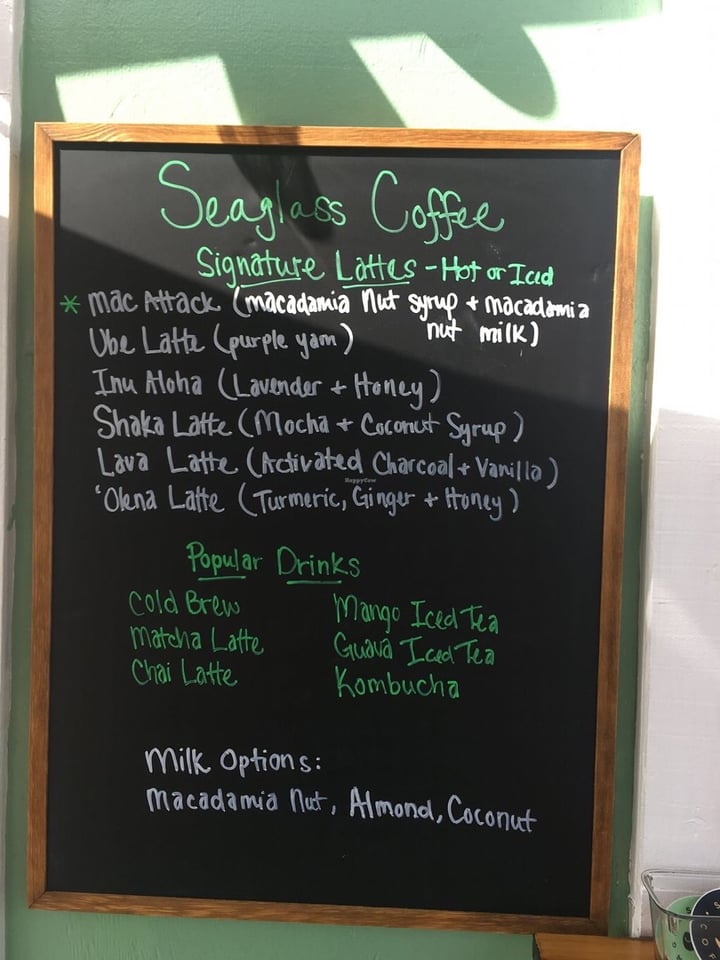 Seaglass Coffee
Signature Lattes - Hot or Iced
* Mac Attack (macadamia nut syrup + macadamia
nut milk)
Ube Latte (purple yam)
Inu Aloha (Lavender + Honey)
Shaka Latte (Mocha + Coconut Syrup)
Lava Latte (Activated Charcoal + Vanilla)
HappyCow
'Olena Latte (Turmeric, Ginger + Honey)
Popular Drinks
Cold Brew
Matcha Latte
Chai Latte
Mango Iced Tea
Guava Iced Tea
Kombucha
Milk Options:
Macadamia Nut, Almond, Coconut